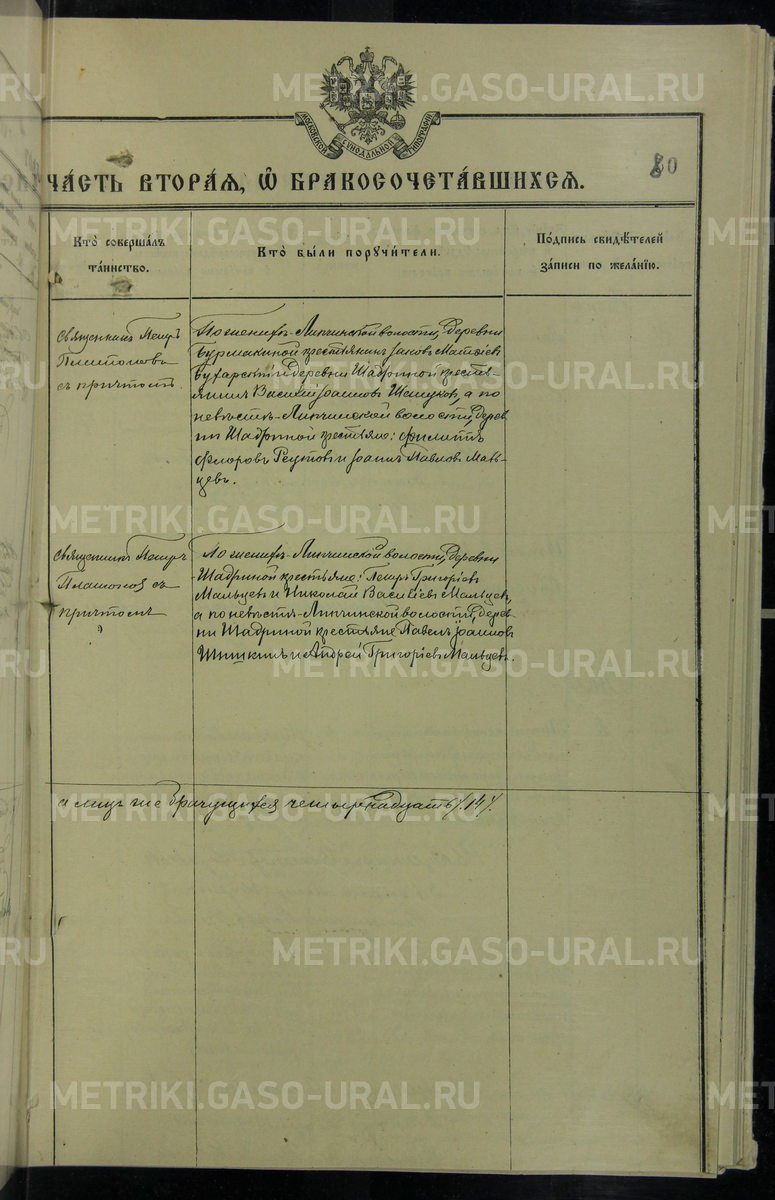 МОСКОВСКОЙ СѴНОДАЛЬНОЙ ТИПОГРАФІИ
ЧА́СТЬ ВТОРА́Я, Ѽ БРАКОСОЧЕТА́ВШИХСЯ.
80
Кто̀ соверша́лъ
та́инство.
Кто̀ бы́ли порꙋчи́тели.
По́дпись свидѣ́телей
за́писи по жела́нїю.
Священникъ Петръ
Платоновъ
съ причтомъ.
По женихѣ - Липчинской волости, деревни
Бурмакиной крестьянинъ Іаковъ Матѳіевъ
Бухарскій и деревни Шадриной кресть-
янинъ Василій Іоанновъ а по
невѣстѣ - Липчинской волости, дерев
ни Шадриной крестьяне: Филиппъ
Флоровъ и Іоаннъ Павловъ Маль-
цевъ.
Священникъ Петръ
Платоновъ съ
причтомъ
По женихѣ - Липчинской волости, деревни
Шадриной крестьяне: Петръ Григоріевъ
Мальцевъ и Николай Василіевъ Мальцевъ,
а по невѣстѣ - Липчинской волости, дерев-
ни Шадриной крестьяне Павелъ Іоанновъ
Шишкинъ и Андрей Григоріевъ Мальцевъ.
а лицъ же брачущихся четырнадцать /.14/.
METRIKI.GASO-URAL.RU